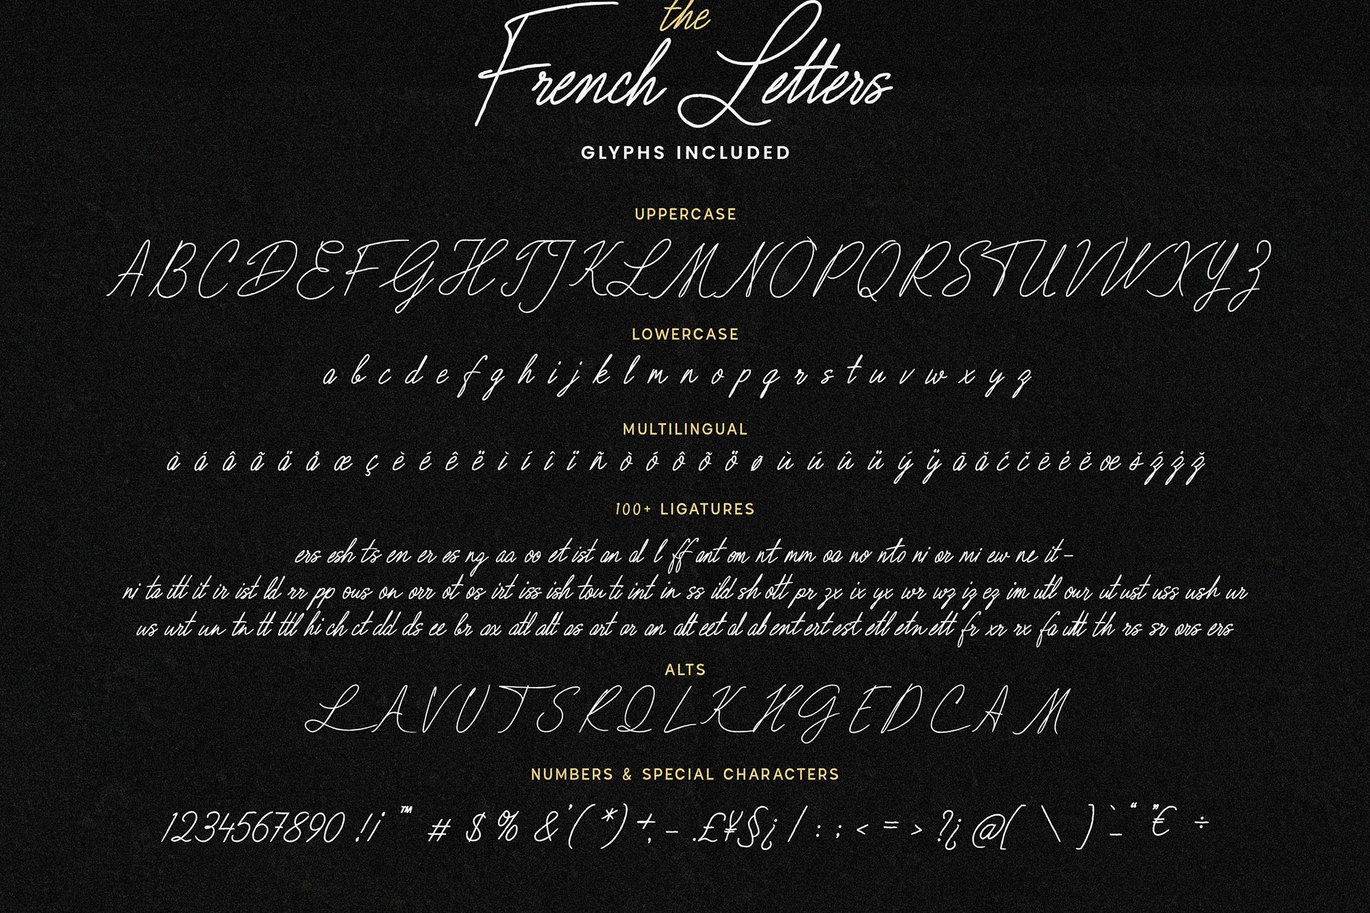 the
French Letters
GLYPHS INCLUDED
UPPERCASE
A B C D E F G H I J K L M N O P Q R S T U V W X Y Z
LOWERCASE
a b c d e f g h i j k l m n o p q r s t u v w x y z
MULTILINGUAL
à á â ã ä å æ ç è é ê ë ì í î ï ñ ò ó ô õ ö ø ù ú û ü ý ÿ ā ă ć č ē ė ě œ š ź ż ž
100+ LIGATURES
ers esh ts en er es ng aa oo et ist an al l ff ant om nt mm oa no nto ni or mi ew ne it –
ni ta itt it ir ist ld rr pp ous on orr ot os irt iss ish tou ti int in ss ild sh ott pr zx ix yx wr wz iz ez im utl our ut ust uss ush ur
us urt un tn tt ttl hi ch ct dd ds ee br ax atl alt as art ar an alt eet al ab ent ert est etl etn ett fr xr rx fa utt th rs sr ors ers
ALTS
L A V U T S R Q L K H G E D C A M
NUMBERS & SPECIAL CHARACTERS
1234567890 !¡ ™ # $ % & ' ( * ) + , – . £ ¥ § ¿ / : ; < = > ? ¿ @ ( \ ) ` _ “ ” € ÷